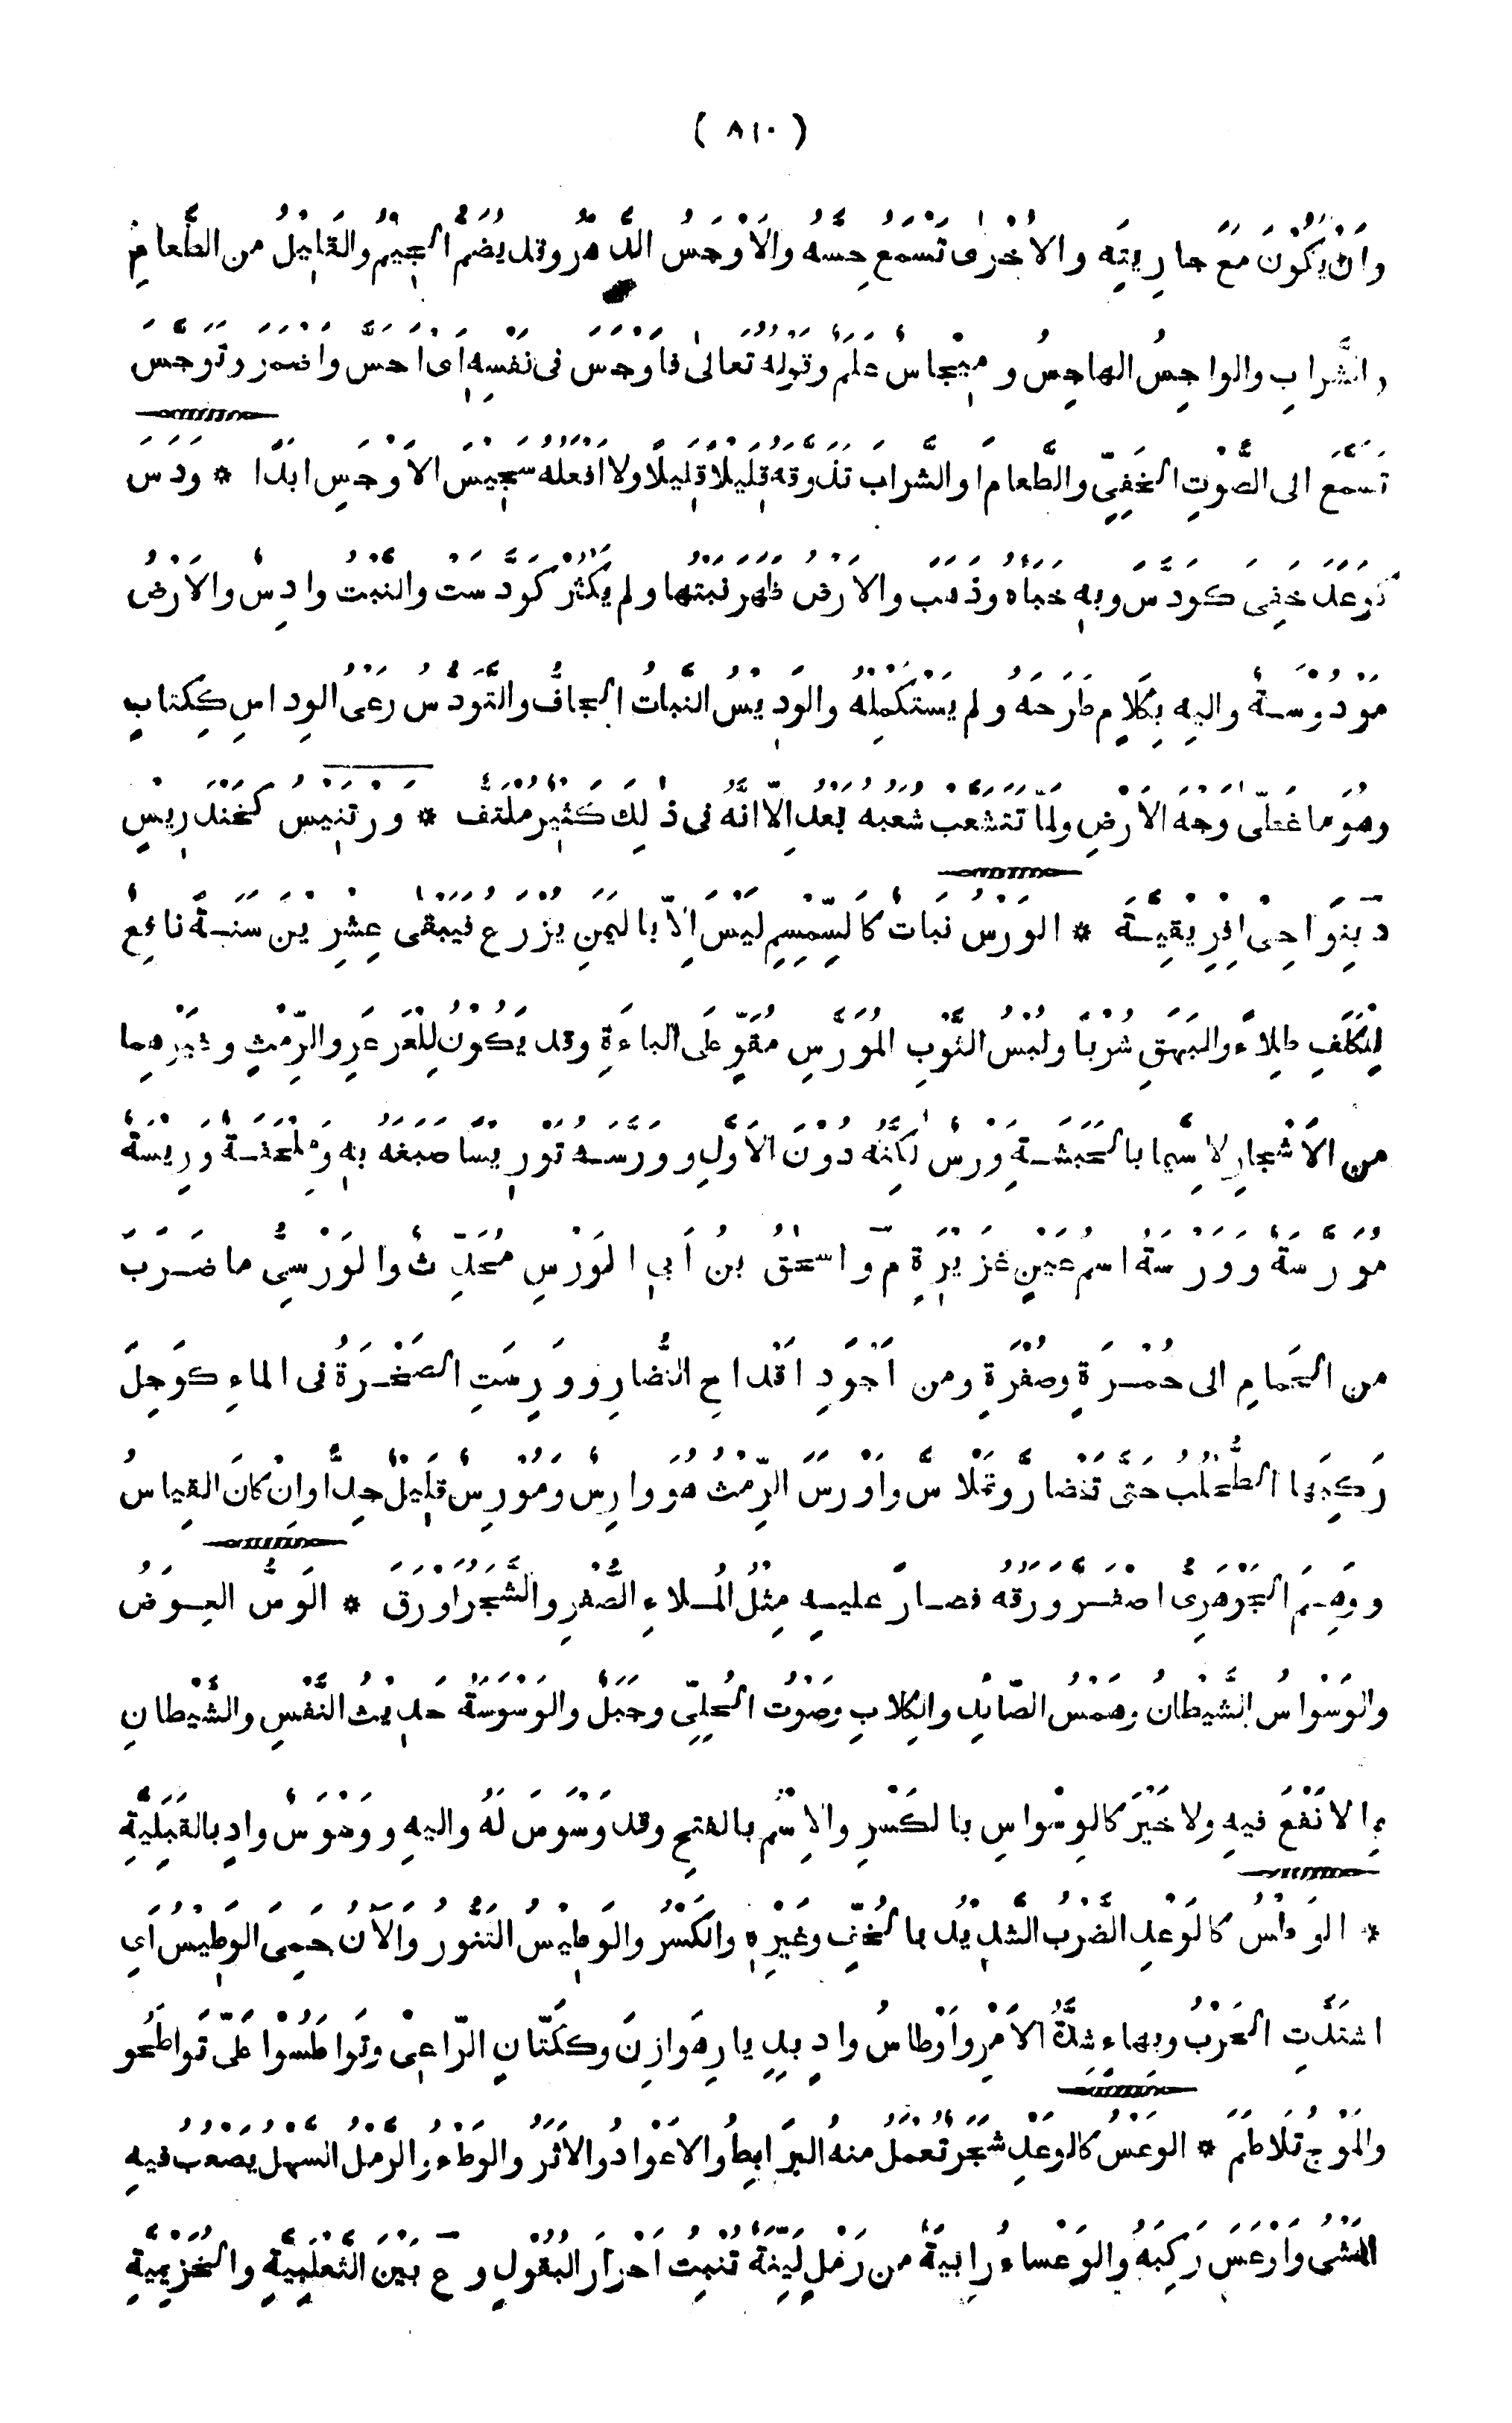 ( ٨١٠ )
وَاَنْ يَكُوْنَ مَعَ جارِيتِه والاُخْرٰى تَسْمَعُ حِسَّهُ والاَوْجَسُ الدَّهْرُ وقد يُضَمُّ الجِيْمُ والقَلِيْلُ من الطَّعامِ
والشَّرابِ والواجِسُ الهاجِسُ ومِيْجاسٌ عَلَمٌ وقَوْلُهُ تَعالىٰ فاَوْجَسَ فى نَفْسِهِ اَىْ اَحَسَّ واَضْمَرَ وتَوَجَّسَ
تَسَمَّعَ الى الصَّوْتِ الخَفِيِّ والطَّعامَ او الشَّرابَ تَذَوَّقَهُ قَلِيْلاً قَلِيْلاً ولا اَفْعَلُهُ سَجِيْسَ الاَوْجَسِ ابَدًا * وَدَسَ
كَوَعَدَ خَفِىَ كَوَدَّسَ وبِهِ خَبَاَهُ وذَهَبَ والاَرْضُ ظَهَرَ نَبْتُها ولم يَكْثُرْ كَوَدَّسَتْ والنَّبْتُ وادِسٌ والاَرْضُ
مَوْدُوْسَةٌ واليهِ بِكَلامٍ طَرَحَهُ ولم يَسْتَكْمِلْهُ والوَدِيْسُ النَّباتُ الجافُّ والتَّوَدُّسُ رَعْىُ الوِداسِ ككِتابٍ
وهُوَ ما غَطّٰى وَجْهَ الاَرْضِ ولَمّا تَتَشَعَّبْ شُعَبُهُ بَعْدُ اِلاّ اَنَّهُ فى ذٰلِكَ كَثِيْرٌ مُلْتَفٌّ * وَرْتَنِيْسُ كخَنْدَرِيْسٍ
د بِنَواحِىْ اِفْرِيْقِيَّةَ * الوَرْسُ نَباتٌ كالسِّمْسِمِ لَيْسَ اِلاّ بالْيَمَنِ يُزْرَعُ فيَبْقٰى عِشْرِيْنَ سَنَةً نافِعٌ
لِلْكَلَفِ طِلاءً والبَهَقِ شُرْبًا ولُبْسُ الثَّوْبِ المُوَرَّسِ مُقَوٍّ عَلَى الباءَةِ وقد يَكُوْنُ لِلْعَرْعَرِ والرِّمْثِ وغَيْرِهِما
من الاَشْجارِ لا سِيَّما بالحَبَشَةِ وَرْسٌ لٰكِنَّهُ دُوْنَ الاَوَّلِ وورَّسَهُ تَوْرِيْسًا صَبَغَهُ بِهِ ومِلْحَفَةٌ وَرِيْسَةٌ
مُوَرَّسَةٌ ووَرْسَةُ اسمُ عَيْنٍ غَزِيْرَةٍ م واسحٰقُ بنُ اَبى الوَرْسِ مُحَدِّثٌ والوَرْسِىُّ ما ضَرَبَ
من الحَمامِ الى حُمْرَةٍ وصُفْرَةٍ ومن اَجْوَدِ اَقْداحِ النُّضارِ ووَرِسَتِ الصَّخْرَةُ فى الماءِ كَوَجِلَ
رَكِبَها الطُّحْلُبُ حَتّى تَخْضارَّ وتَمْلاسَّ واَوْرَسَ الرِّمْثُ هُوَ وارِسٌ ومُوْرِسٌ قَلِيْلٌ جِدًّا وانْ كانَ القِياسُ
ووَهِمَ الجَوْهَرِىُّ اصْفَرَّ ورَقُهُ فصارَ عليهِ مِثْلُ المُلاءِ الصُّفْرِ والشَّجَرُ اَوْرَقَ * الوَسُّ العِوَضُ
والوَسْواسُ الشَّيْطانُ وهَمْسُ الصّائِدِ والكِلابِ وصَوْتُ الحُلِيِّ وجَبَلٌ والوَسْوَسَةُ حَدِيْثُ النَّفْسِ والشَّيْطانِ
بِما لا نَفْعَ فيهِ ولا خَيْرَ كالوِسْواسِ بالكَسْرِ والاِسْمُ بالفتحِ وقد وَسْوَسَ لَهُ واليهِ ووَسْوَسٌ وادٍ بالقَبَلِيَّةِ
* الوَطْسُ كالوَعْدِ الضَّرْبُ الشَّدِيْدُ بالخُفِّ وغَيْرِهِ والكَسْرُ والوَطِيْسُ التَّنُّورُ والآنَ حَمِىَ الوَطِيْسُ اَىِ
اشتَدَّتِ الحَرْبُ وبهاءٍ شِدَّةُ الاَمْرِ واَوْطاسُ وادٍ بدِيارِ هَوازِنَ وككَتّانٍ الرّاعِىْ وتَواطَسُوْا عَلَىَّ تَواطَحُو
والمَوْجُ تَلاطَمَ * الوَعْسُ كالوَعْدِ شَجَرٌ تُعْمَلُ منهُ البَرابِطُ والاَعْوادُ والاَثَرُ والوَطْءُ والرَّمْلُ السَّهْلُ يَصْعُبُ فيهِ
المَشْىُ واَوْعَسَ رَكِبَهُ والوَعْساءُ رابِيَةٌ من رَمْلٍ لَيِّنَةٌ تُنْبِتُ اَحْرارَ البُقُوْلِ و ع بَيْنَ الثَّعْلَبِيَّةِ والخُزَيْمِيَّةِ